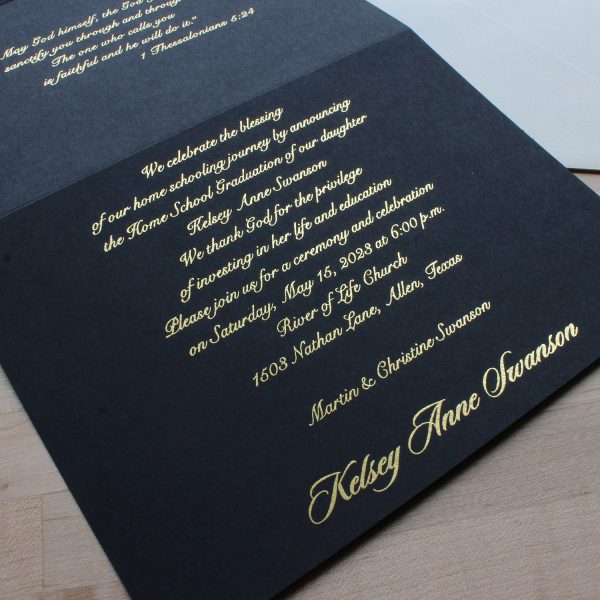 "May God himself, the God
sanctify you through and through
The one who calls you
is faithful and he will do it."
1 Thessalonians 5:24
We celebrate the blessing
of our home schooling journey by announcing
the Home School Graduation of our daughter
Kelsey Anne Swanson
We thank God for the privilege
of investing in her life and education
Please join us for a ceremony and celebration
on Saturday, May 15, 2023 at 6:00 p.m.
River of Life Church
1503 Nathan Lane, Allen, Texas
Martin & Christine Swanson
Kelsey Anne Swanson